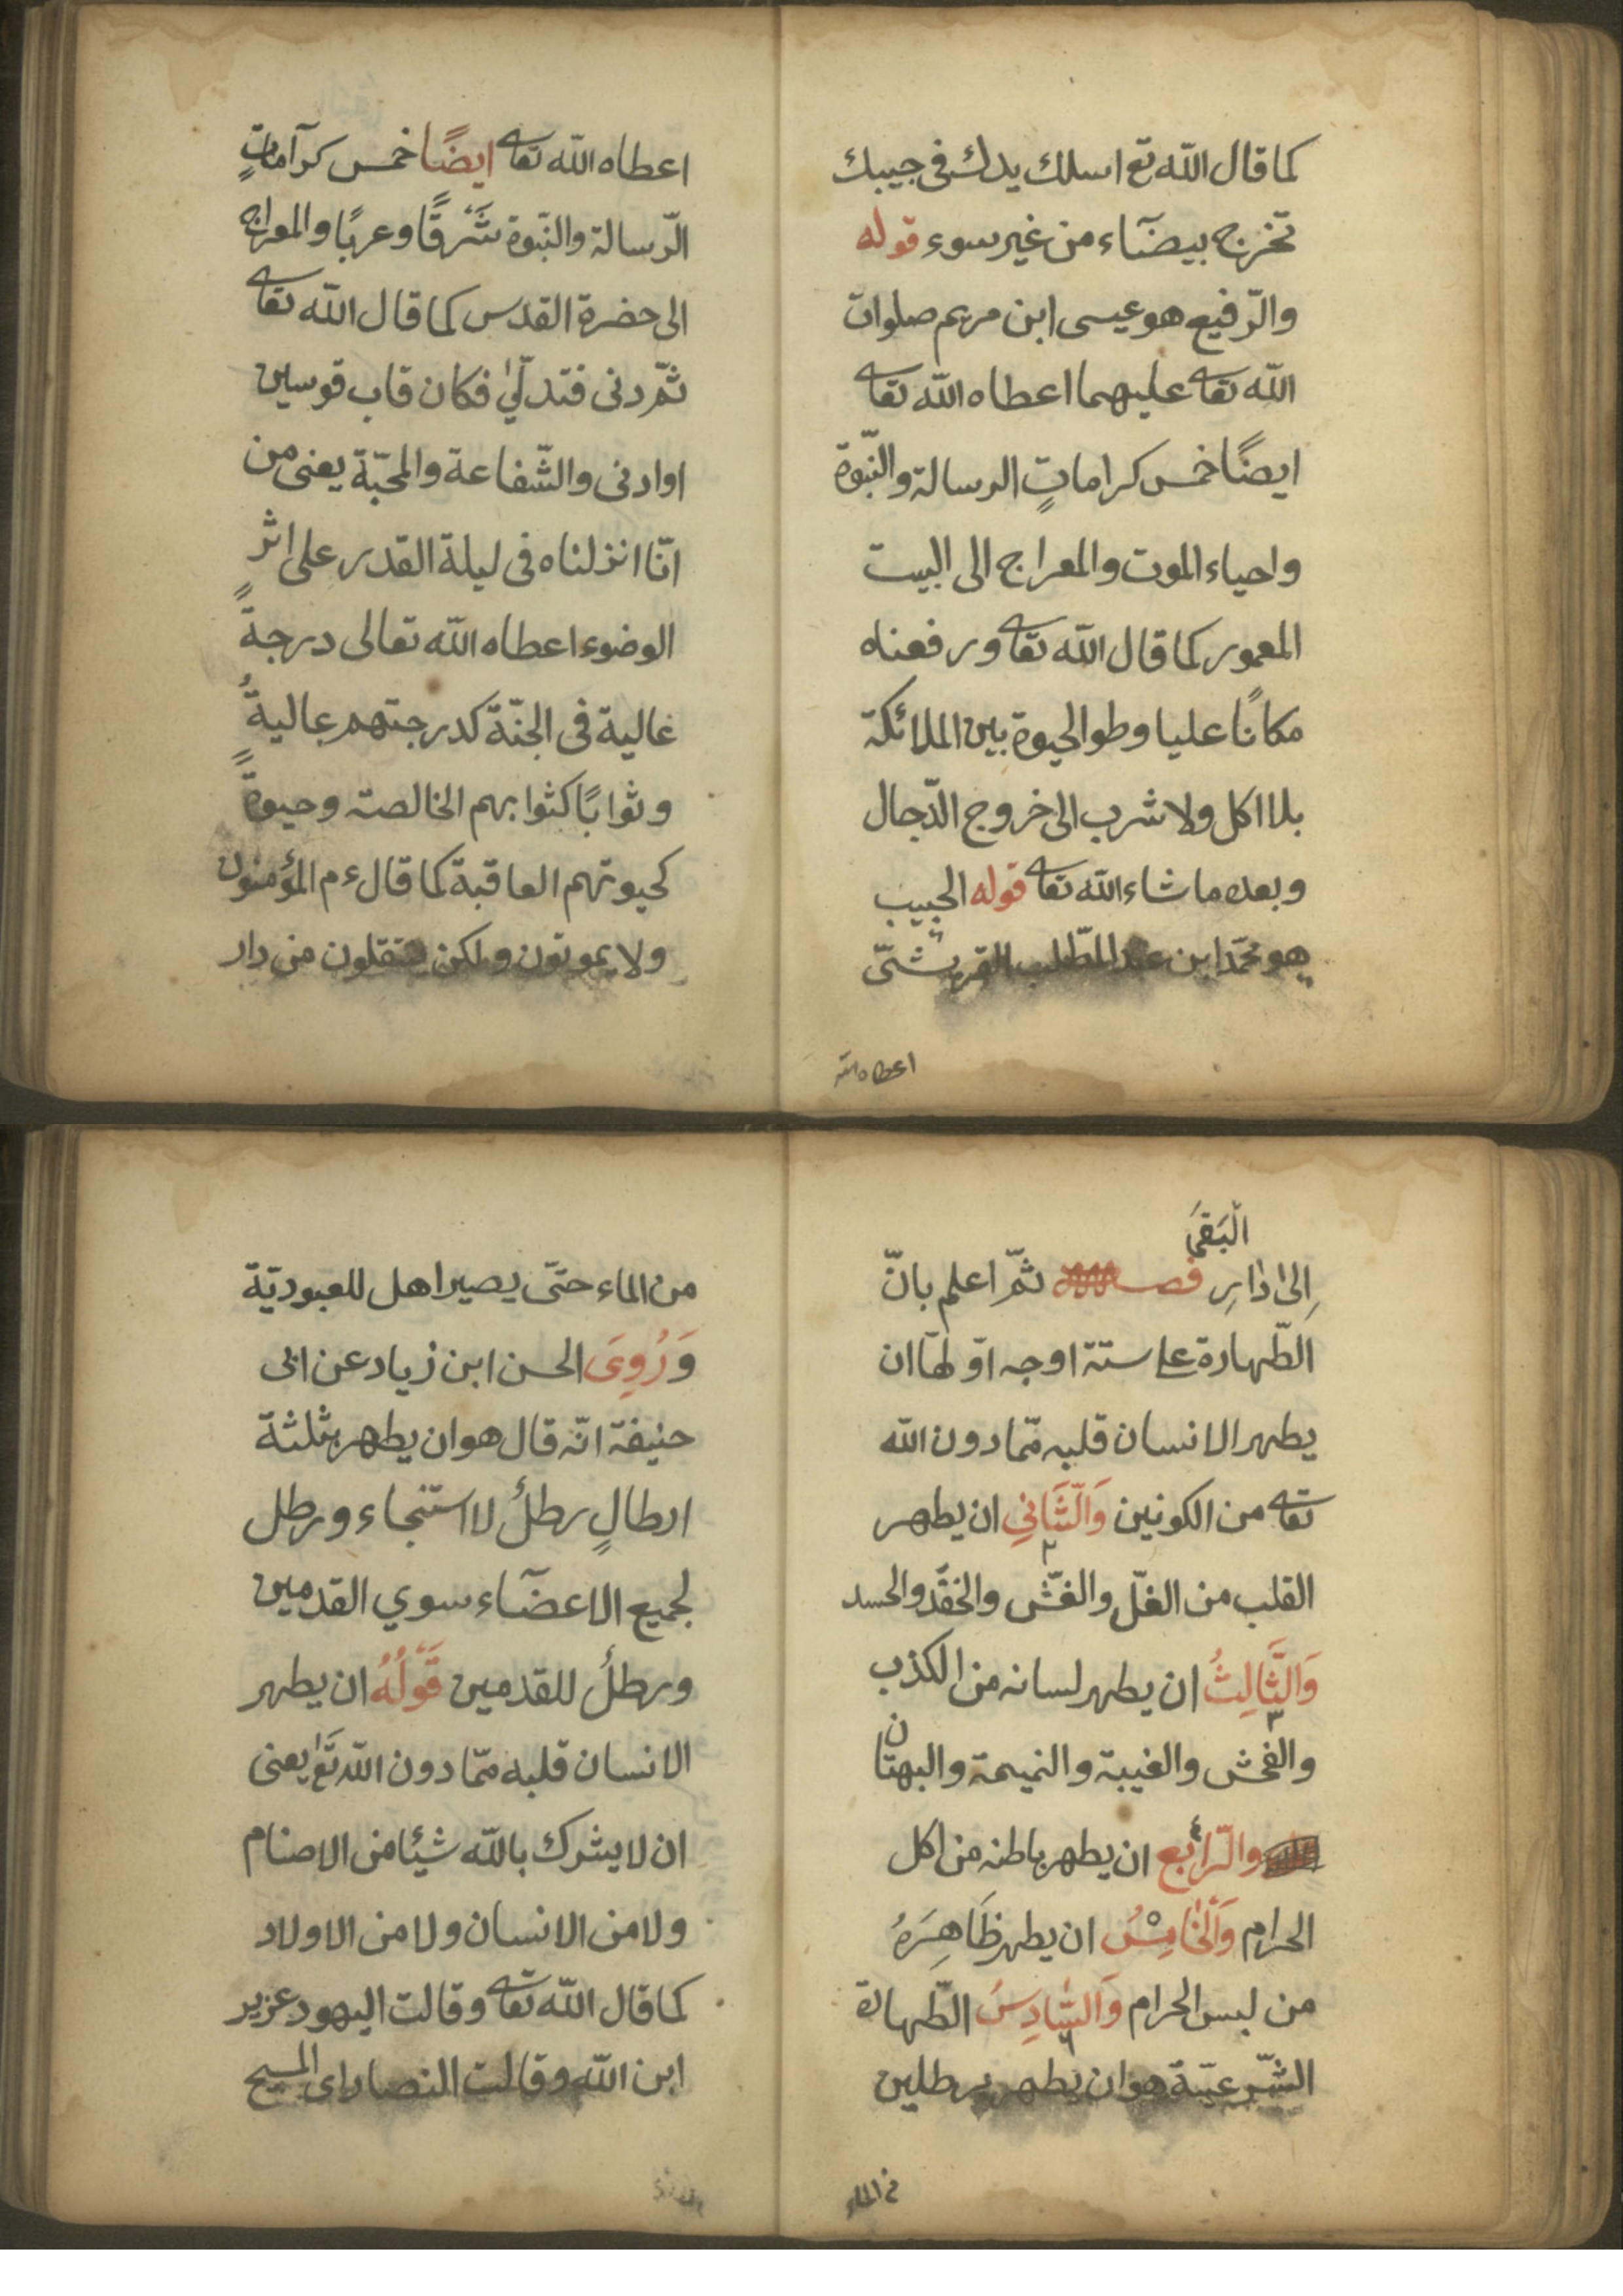 كما قال الله تع اسلك يدك فى جيبك
تخرج بيضآء من غير سوء قوله
والرّفيع هو عيسى ابن مريم صلوات
الله تعا عليهما اعطاه الله تعا
ايضًا خمس كراماتٍ الرسالة والنّبوة
واحياء الموت والمعراج الى البيت
المعمور كما قال الله تعا ورفعناه
مكانًا عليا وطو الحيوة بين الملائكة
بلا اكل ولا شرب الى خروج الدّجال
وبعده ما شاء الله تعا قوله الحبيب
هو محمّد ابن عبد المطّلب القريشىّ
اعطاه الله
اعطاه الله تعا ايضًا خمس كرآماتٍ
الرّسالة والنّبوة شَرقًا وعربًا والمعراج
الى حضرة القدس كما قال الله تعا
ثمّ دنى فتدلّىٰ فكان قاب قوسين
اوادنى والشّفاعة والمحبّة يعنى من
انّا انزلناه فى ليلة القدر على اثر
الوضوء اعطاه الله تعالى درجةً
غالية فى الجنّة كدرجتهم عاليةُ
وثوابًا كثوابهم الخالصة وحيوةً
كحيوتهم العاقبة كما قال ءم المؤمنون
ولا يموتون ولكن ينتقلون من دار
الْبَقَى
اِلىٰ دٰارِ فصـ ثمّ اعلم بانّ
الطّهارة على ستة اوجه اوّلهآ ان
يطهر الانسان قلبه ممّا دون الله
تعا من الكونين وَالثَّانِي ان يطهر
٢
القلب من الغلّ والغشّ والحقد والحسد
وَالثَّالِثُ ان يطهر لسانه من الكذب
٣
والفحش والغيبة والنميمة والبهتان
٤
والرّابع ان يطهر باطنه من اكل
الحرام وَالْخَامِسُ ان يطهر ظَاهِرَهُ
من لبس الحرام وَالسَّادِسُ الطّهارة
٦
الشّرعيّة هو ان يطهر برطلين
من الماء
من الماء حتّى يصير اهل للعبوديّة
وَرُوِىَ الحسن ابن زياد عن ابى
حنيفة انّه قال هو ان يطهر بثلثة
ارطالٍ رطلُ لاستنجاء ورطل
لجميع الاعضآء سوي القدمين
ورطلُ للقدمين قَوْلُهُ ان يطهر
الانسان قلبه ممّا دون الله تع يعنى
ان لا يشرك بالله شيئا من الاصنام
ولا من الانسان ولا من الاولاد
كما قال الله تعا وقالت اليهود عزير
ابن الله وقالت النصاراى المسيح